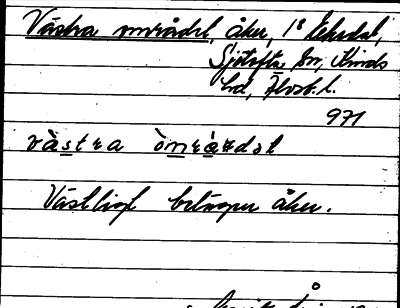 Västra området, åker, 1⁸ Ekedal,
Sjötofta sn, Kinds
hd, Älvsb. l.
971
västra ò
Västligt belägen åker.